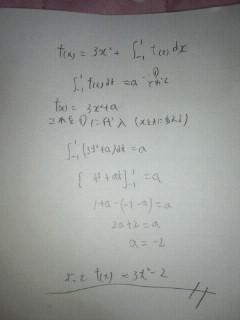 f(x) = 3x² + ∫₋₁¹ f(x)dx
∫₋₁¹ f(x)dt = a …① とおくと
f(x) = 3x²+a
これを①に代入 (xをtに変える)
∫₋₁¹ (3t²+a)dt = a
[t³+at]₋₁¹ = a
1+a-(-1-a) = a
2a+2 = a
a = -2
よって f(x) = 3x²-2